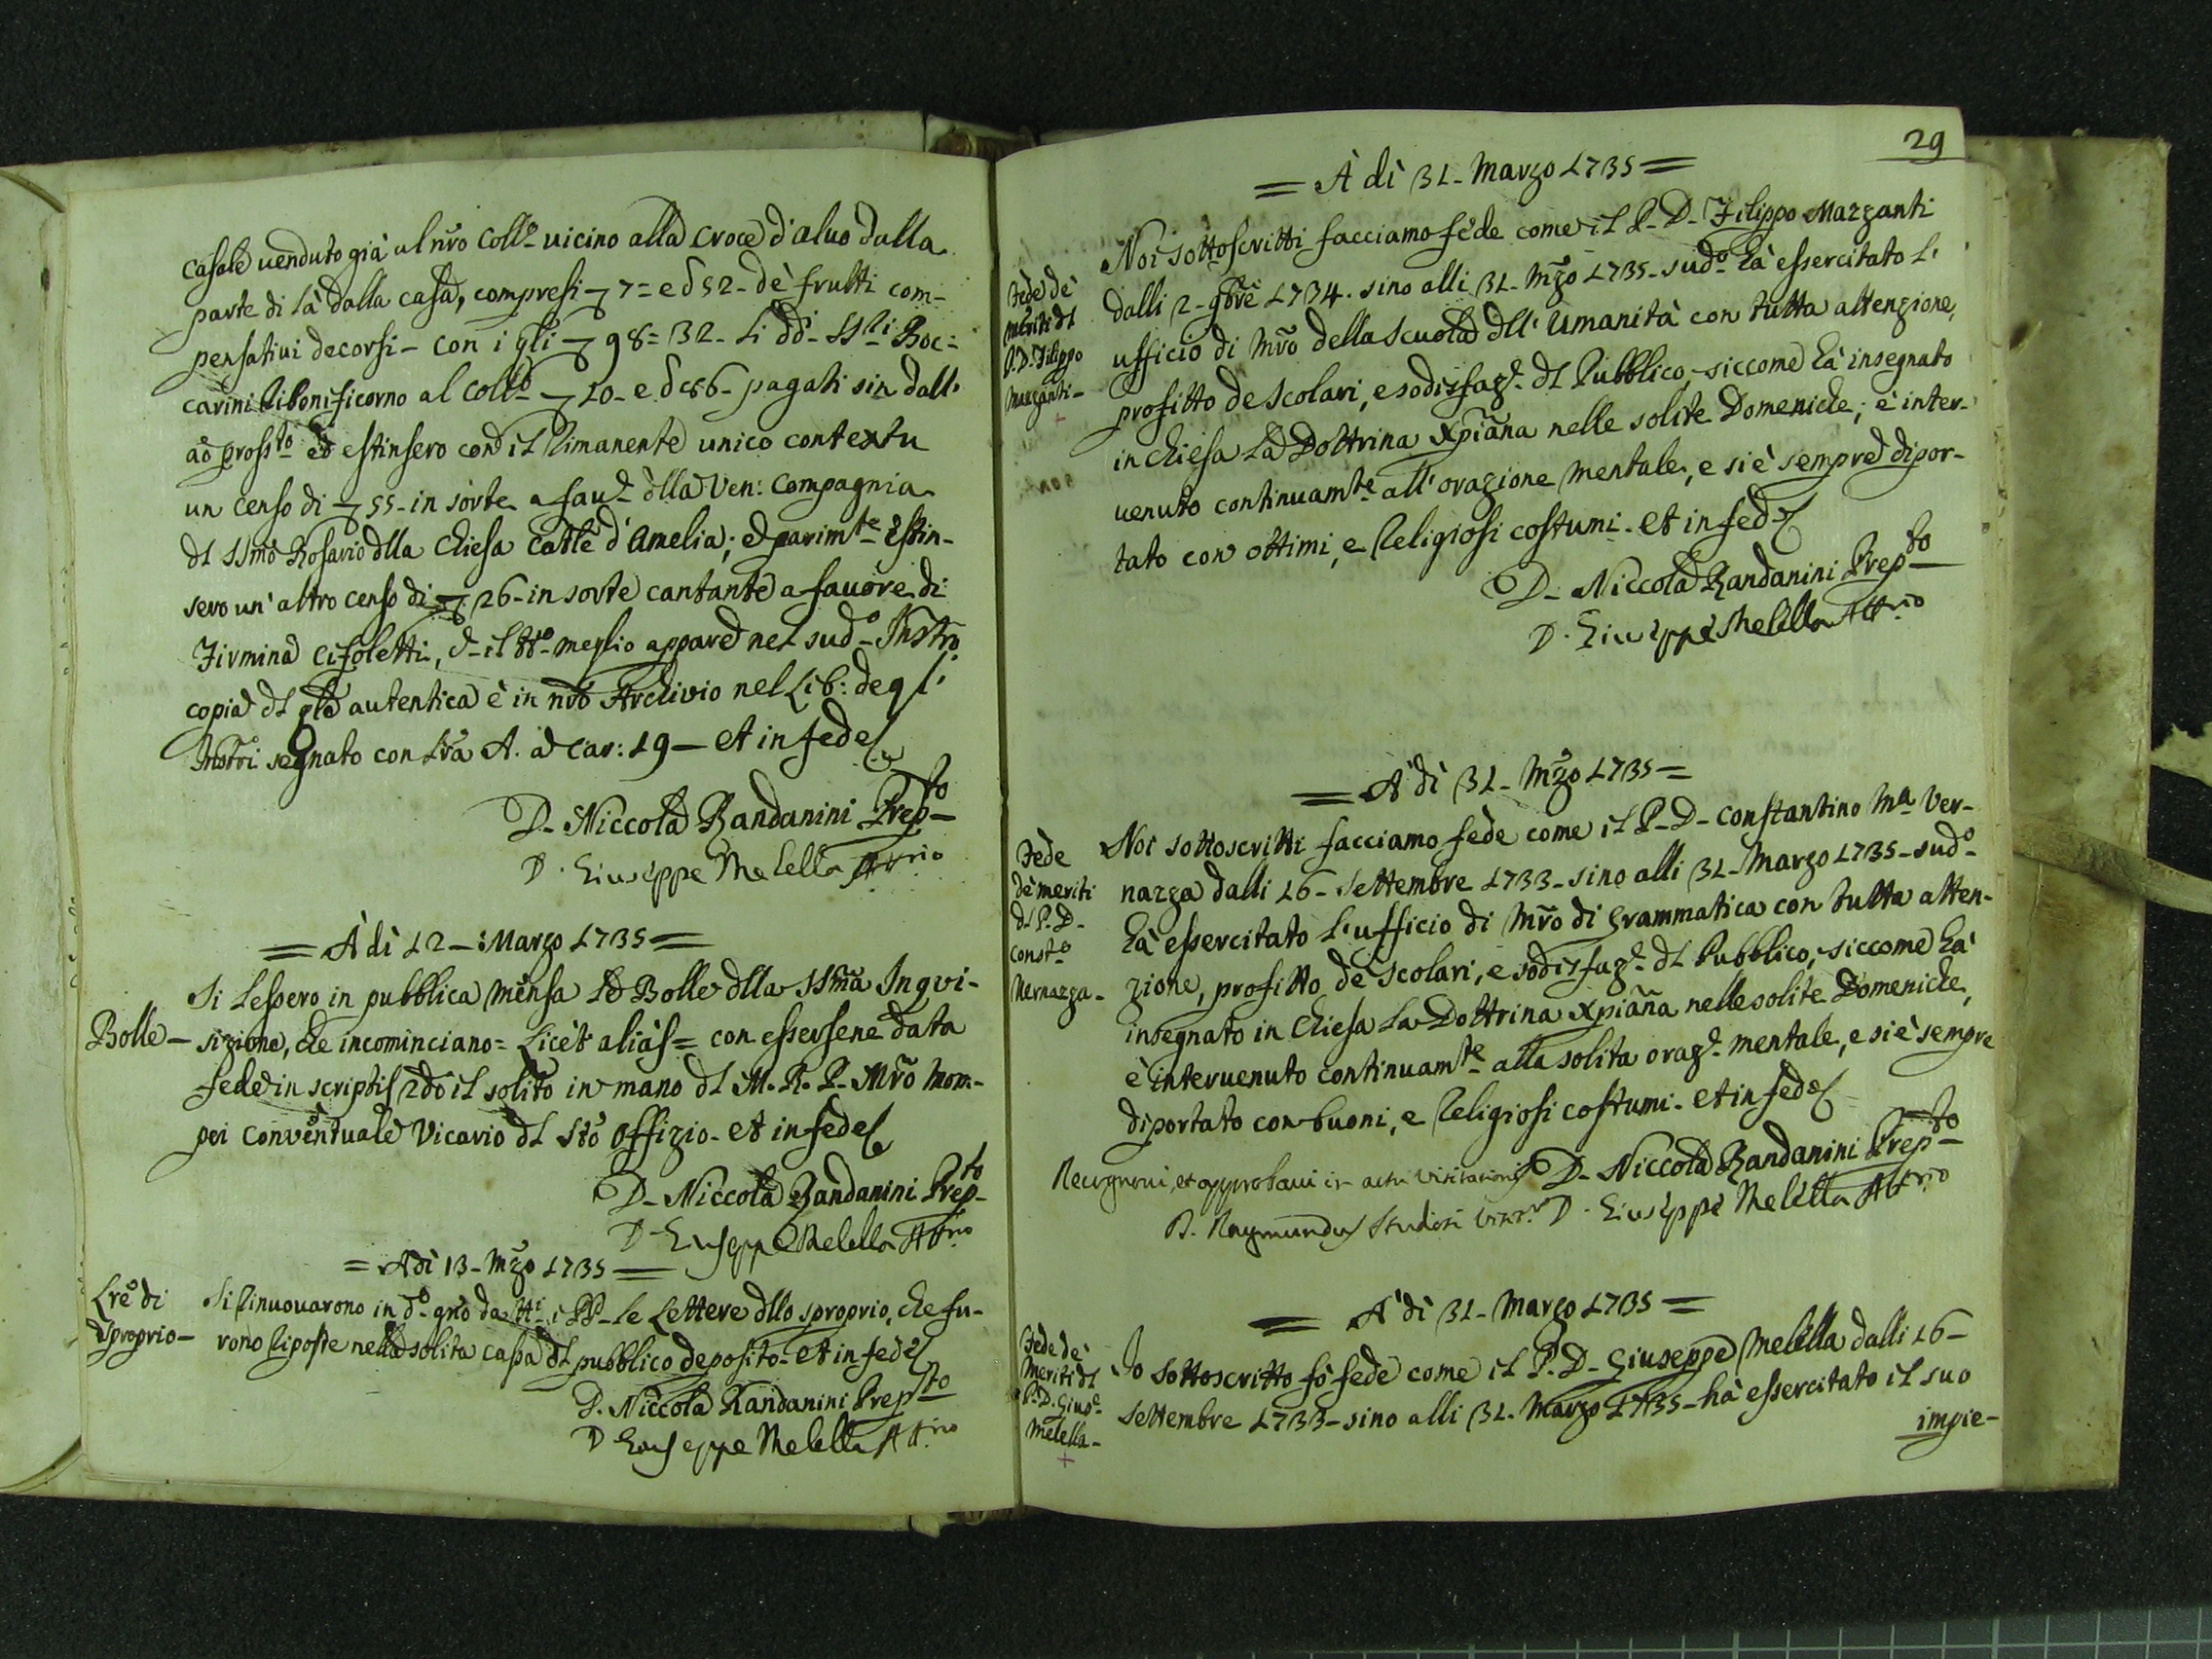 casale uenduto già al nrõ Collº uicino alla croce d'aluo dalla
parte di là dalla casa, compresi 7= e d 52 - dè frutti com-
pensatiui decorsi - con i qli 98=32 - li dd. SSri Boc-
carini ribonificorno al Collº 10 - e d 86 - pagati sin dall'
aõ prossto ed estinsero con il rimanente unico contextu
un censo di 55 - in sorte a faue dlla Ven: Compagnia
dl SSmo Rosario dlla Chiesa Cattle d'Amelia; e parimte Estin-
sero un'altro censo di 26 - in sorte cantante a fauore di
Firmina Cifoletti, e il tto meglio appare nel sudº Instrº
copia dl qle autentica è in nrõ Archivio nel Lib: degl'
Instri segnato con Lra A. a Car: 19 - et in fede
D. Niccola Zandanini Prepto
D. Giuseppe Melella Attrio
= À dì 12 - Marzo 1735 =
Si lessero in pubblica mensa le Bolle dlla SSma Inqui-
Bolle - sizione, che incominciano = Licèt aliàs = con essersene data
fede in scriptis 2dº il solito in mano dl M. R. P. Mrõ Mom-
pei Conventuale Vicario dl Stõ Offizio - et in fede
D. Niccola Zandanini Prepto
D. Giuseppe Melella Attrio
= A dì 13 - Mzo 1735 =
Lre di
sproprio -
Si rinuouarono in dº gnõ da tti i PP. le Lettere dllo sproprio, che fu-
rono riposte nella solita cassa dl pubblico deposito - et in fede
D. Niccola Zandanini Prepto
D. Giuseppe Melella Attrio
29
= À dì 31 - Marzo 1735 =
Fede de'
meriti dl
P. D. Filippo
Marzanti -
Noi sottoscritti facciamo fede come il P. D. Filippo Marzanti
dalli 2 - 9bre 1734. sino alli 31 - Mzo 1735 - sudº hà essercitato l'
ufficio di Mrõ della Scuola dll'Umanità con tutta attenzione,
profitto de Scolari, e sodisfaze dl Pubblico, siccome hà insegnato
in chiesa la Dottrina Xpiãna nelle solite Domeniche; è inter-
uenuto continuamte all'orazione mentale, e si è sempre dipor-
tato con ottimi, e Religiosi costumi - et in fede
D. Niccola Zandanini Prepto
D. Giuseppe Melella Attrio
= A dì 31 - Mzo 1735 =
Fede
de meriti
dl P. D.
Constº
Vernazza -
Noi sottoscritti facciamo fede come il P. D. Constantino Mª Ver-
nazza dalli 16 - Settembre 1733 - sino alli 31 - Marzo 1735 - sudº
hà essercitato l'ufficio di Mrõ di Grammatica con tutta atten-
zione, profitto de Scolari, e sodisfaze dl Pubblico, siccome hà
insegnato in Chiesa la Dottrina Xpiãna nelle solite Domeniche,
è interuenuto continuamte alla solita oraze mentale, e si è sempre
diportato con buoni, e Religiosi costumi - et in fede
D. Niccola Zandanini Prepto
Recognoui, et approbaui in actu visitationis
D. Giuseppe Melella Attrio
D. Raymundus Studiosi Visr
= A dì 31 - Marzo 1735 =
Fede de'
Meriti dl
P. D. Giuse
Melella -
Io sottoscritto fò fede come il P. D. Giuseppe Melella dalli 16 -
Settembre 1733 - sino alli 31 - Marzo 1735 - hà essercitato il suo
impie-